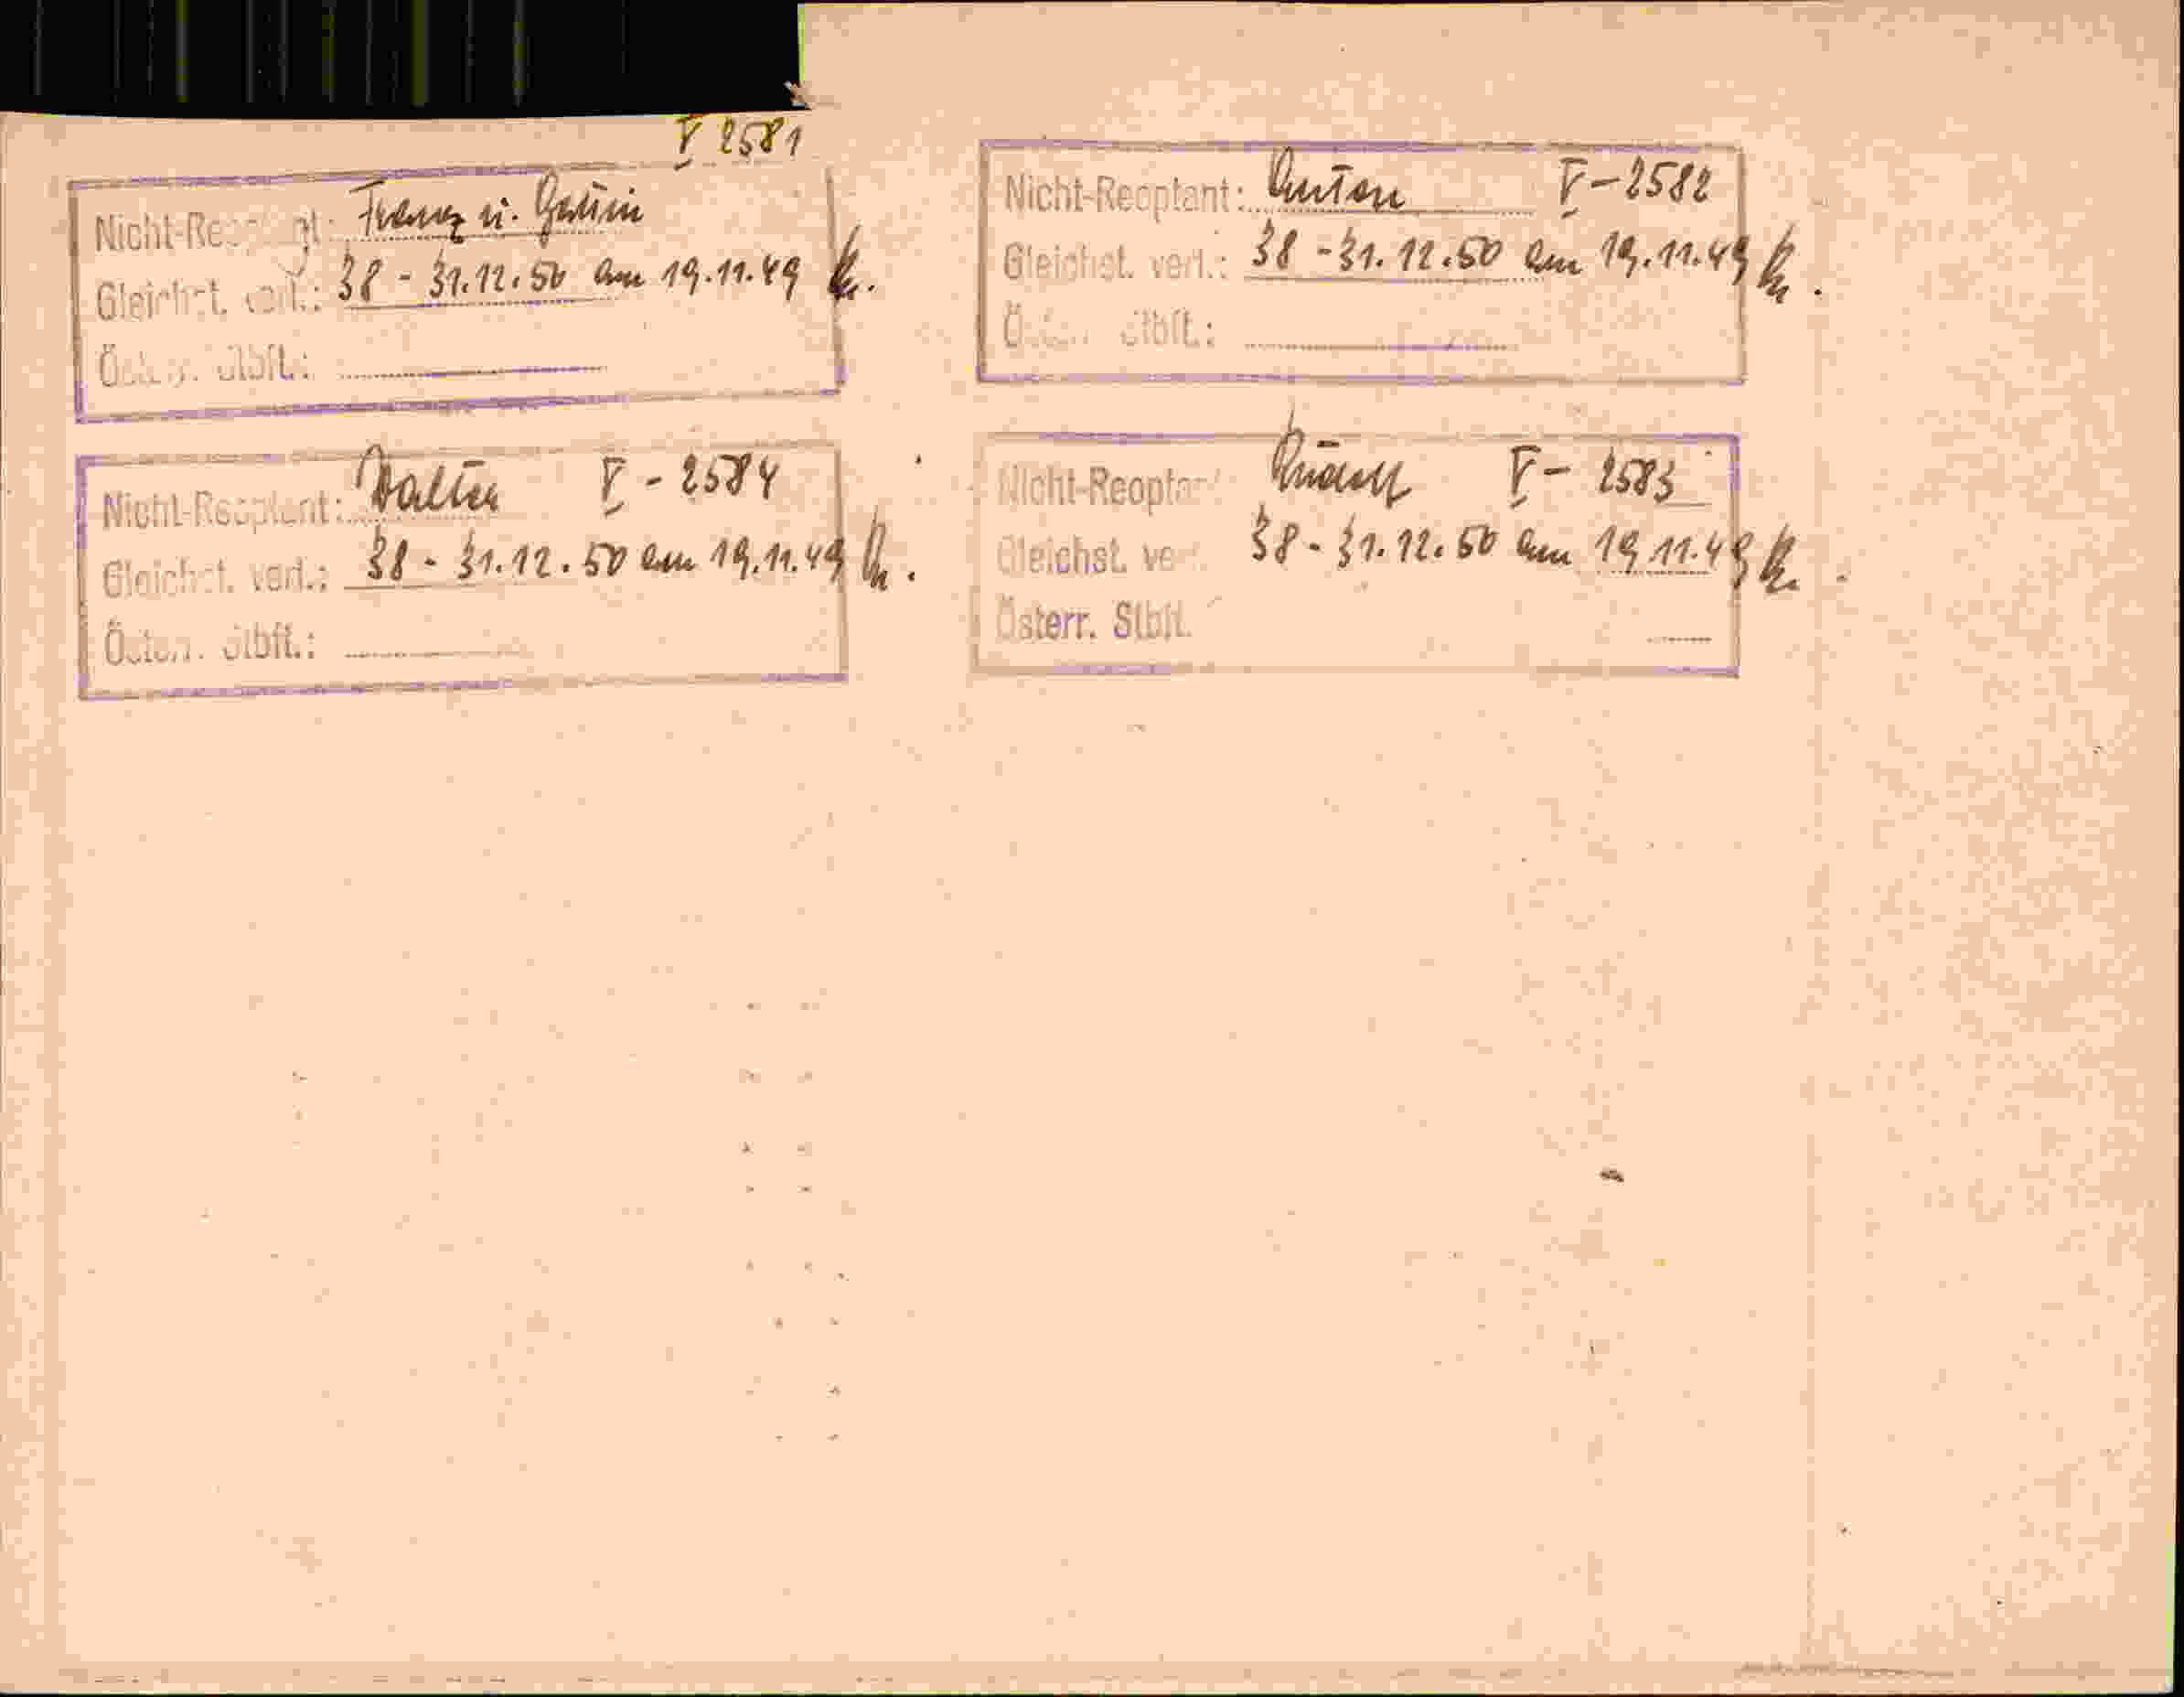 V 2581
Nicht-Reoptant: Franz u. Gattin
Gleichst. verl.: 38 - 31.12.50 am 19.11.49
Österr. Stbft.:
Nicht-Reoptant: Anton V-2582
Gleichst. verl.: 38 - 31.12.50 am 19.11.49
Österr. Stbft.:
Nicht-Reoptant: Walter V - 2584
Gleichst. verl.: 38 - 31.12.50 am 19.11.49
Österr. Stbft.:
Nicht-Reoptant Rudolf V - 2583
Gleichst. ver 38 - 31.12.50 am 19.11.49
Österr. Stbft.